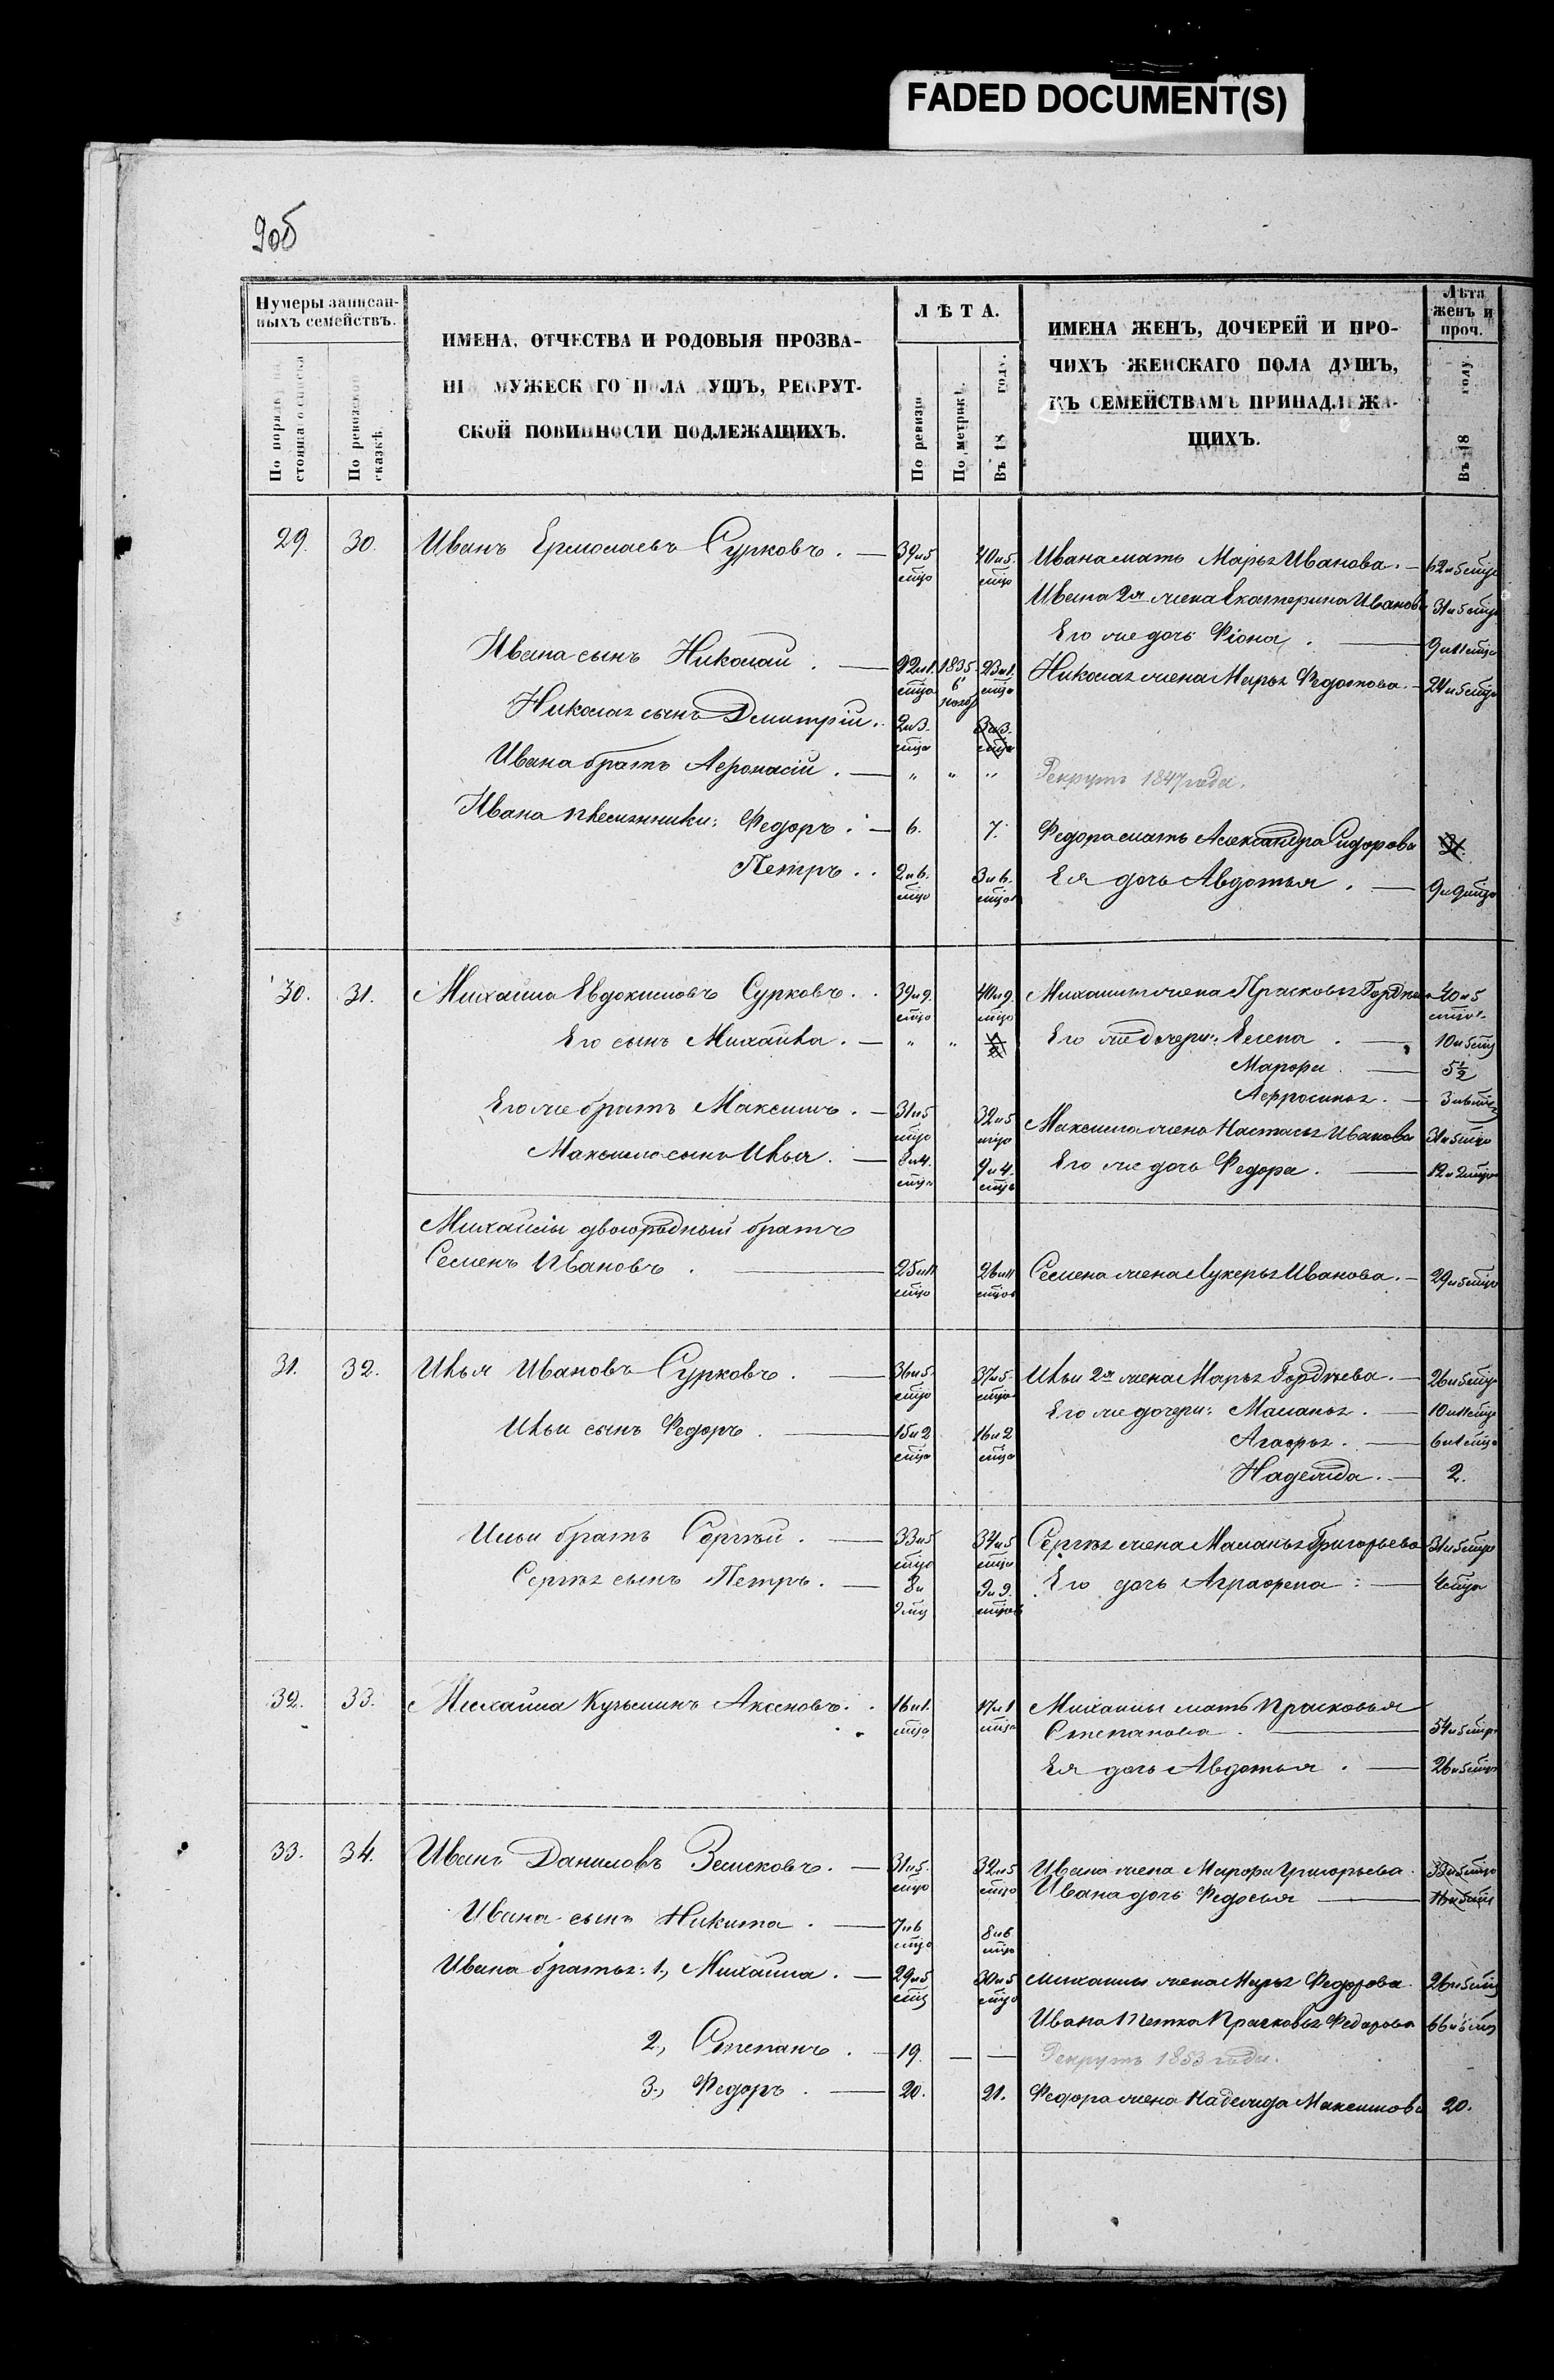 FADED DOCUMENT(S)
9об
Нумеры записан-
ныхъ семействъ.
По ревизской
сказкѣ.
ИМЕНА, ОТЧЕСТВА И РОДОВЫЯ ПРОЗВА-
СКОЙ ПОВИННОСТИ ПОДЛЕЖАЩИХЪ.
ЛѢТА.
По ревизіи
По метрикѣ.
Въ 18 году.
ИМЕНА ЖЕНЪ, ДОЧЕРЕЙ И ПРО-
ЧИХЪ ЖЕНСКАГО ПОЛА ДУШЪ,
КЪ СЕМЕЙСТВАМЪ ПРИНАДЛЕЖА-
ЩИХЪ.
Лѣта
женъ и
проч.
Въ 18 году.
29. 30. Иванъ Ермолаевъ Сурковъ. 39 и 5 мцо 40 и 5. мцо Ивана мать Марья Иванова. 62 и 5 мцо
Ивана 2я жена Екатерина Иванова 31 и 5 мцо
Его же дочь Фіона. 9 и 11 мцо
Ивана сынъ Николай. 22 и 1. мцо 1835 6 ноябр 23 и 1. мцо Николая жена Марья Федотова. 24 и 5 мцо
Николая сынъ Дмитрій. 2 и 3. мцо 3 и 3. мцо
Ивана братъ Афонасій. " " " Рекрутъ 1847 года.
Ивана племянники: Федоръ. 6. 7. Федора мать Александра Сидорова
Петръ. 2 и 6. мцо 3 и 6. мцо Ея дочь Авдотья. 9 и 9 мцо
30. 31. Михаила Евдокимовъ Сурковъ. 39 и 9. мцо 40 и 9. мцо Михаилы жена Прасковья 40 и 5 мцо
Его сынъ Михайла. " " Его же дочери: Елена 10 и 5 мц
Марфа. 5½
Афросинья. 3 и 6 мцо
Его же братъ Максимъ. 31 и 5 мцо 32 и 5 мцо Максима жена Настасья Иванова 31 и 5 мцо
Максима сынъ Илья. 8 и 4. мцо 9 и 4. мцо Его же дочь Федора. 12 и 2 мцо
Михайлы двоюродный братъ
Семенъ Ивановъ. 25 и 11 мцо 26 и 11 мцов Семена жена Лукерья Иванова. 29 и 5 мцо
31. 32. Илья Ивановъ Сурковъ. 36 и 5. мцо 37 и 5. мцо Ильи 2я жена Марья Гордѣева. 26 и 5 мцо
Его же дочери: Маланья. 10 и 11 мцо
Ильи сынъ Федоръ. 15 и 2 мцо 16 и 2 мцо Агафья. 6 и 1 мцо
Надежда. 2.
Ильи братъ Сергѣй. 33 и 5 мцо 34 и 5 мцо Сергѣя жена Маланья Григорьева 31 и 5 мцо
Сергѣя сынъ Петръ. 8 и 9 мц 9 и 9. мцов Его дочь Аграфена. 4 мцо
32. 33. Михайла Кузьминъ Аксеновъ. 16 и 1. мцо 17 и 1 мцо Михаилы мать Прасковья
Степанова. 54 и 5 мцо
Ея дочь Авдотья. 26 и 5 мцо
33. 34. Иванъ Даниловъ Земсковъ. 31 и 5. мцо 32 и 5 мцо Ивана жена Марфа Григорьева. 33 и 5 мцо
Ивана дочь Федосья
Ивана сынъ Никита. 7 и 6 мцо 8 и 6 мцо
Ивана братья: 1, Михаила. 29 и 5 мц 30 и 5 мцо Михаилы жена Марья Федорова. 26 и 5 мц
Ивана тетка Прасковья Федорова 66 и 5 мц
2, Степанъ. 19. — — Рекрутъ 1853 года.
3, Федоръ. 20. 21. Федора жена Надежда Максимова 20.